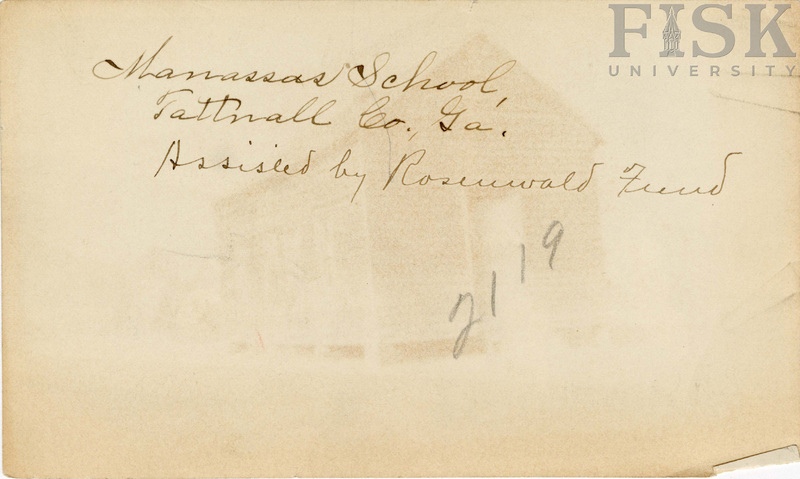 FISK
UNIVERSITY
Manassas School,
Tattnall Co., Ga.
Assisted by Rosenwald Fund
2119